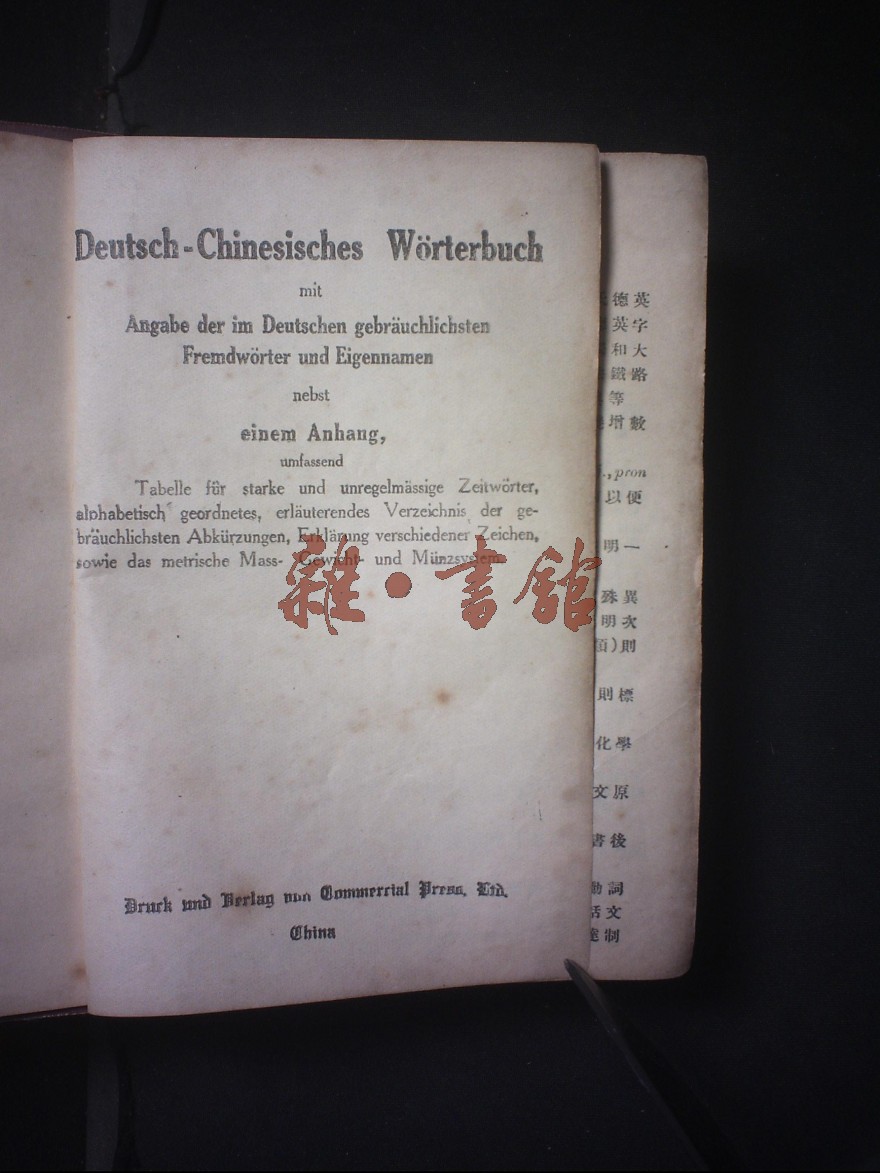 Deutsch-Chinesisches Wörterbuch
mit
Angabe der im Deutschen gebräuchlichsten
Fremdwörter und Eigennamen
nebst
einem Anhang,
umfassend
Tabelle für starke und unregelmässige Zeitwörter,
alphabetisch geordnetes, erläuterendes Verzeichnis der ge-
bräuchlichsten Abkürzungen, Erklärung verschiedener Zeichen,
sowie das metrische Mass- Gewicht- und Münzsystem.
雜·書館
Druck und Verlag von Commercial Press, Ltd.
China
德英
英字
和大
鐵路
等
增數
pron
以便
明一
殊異
明次
則
則標
化學
文原
書後
詞
文
制